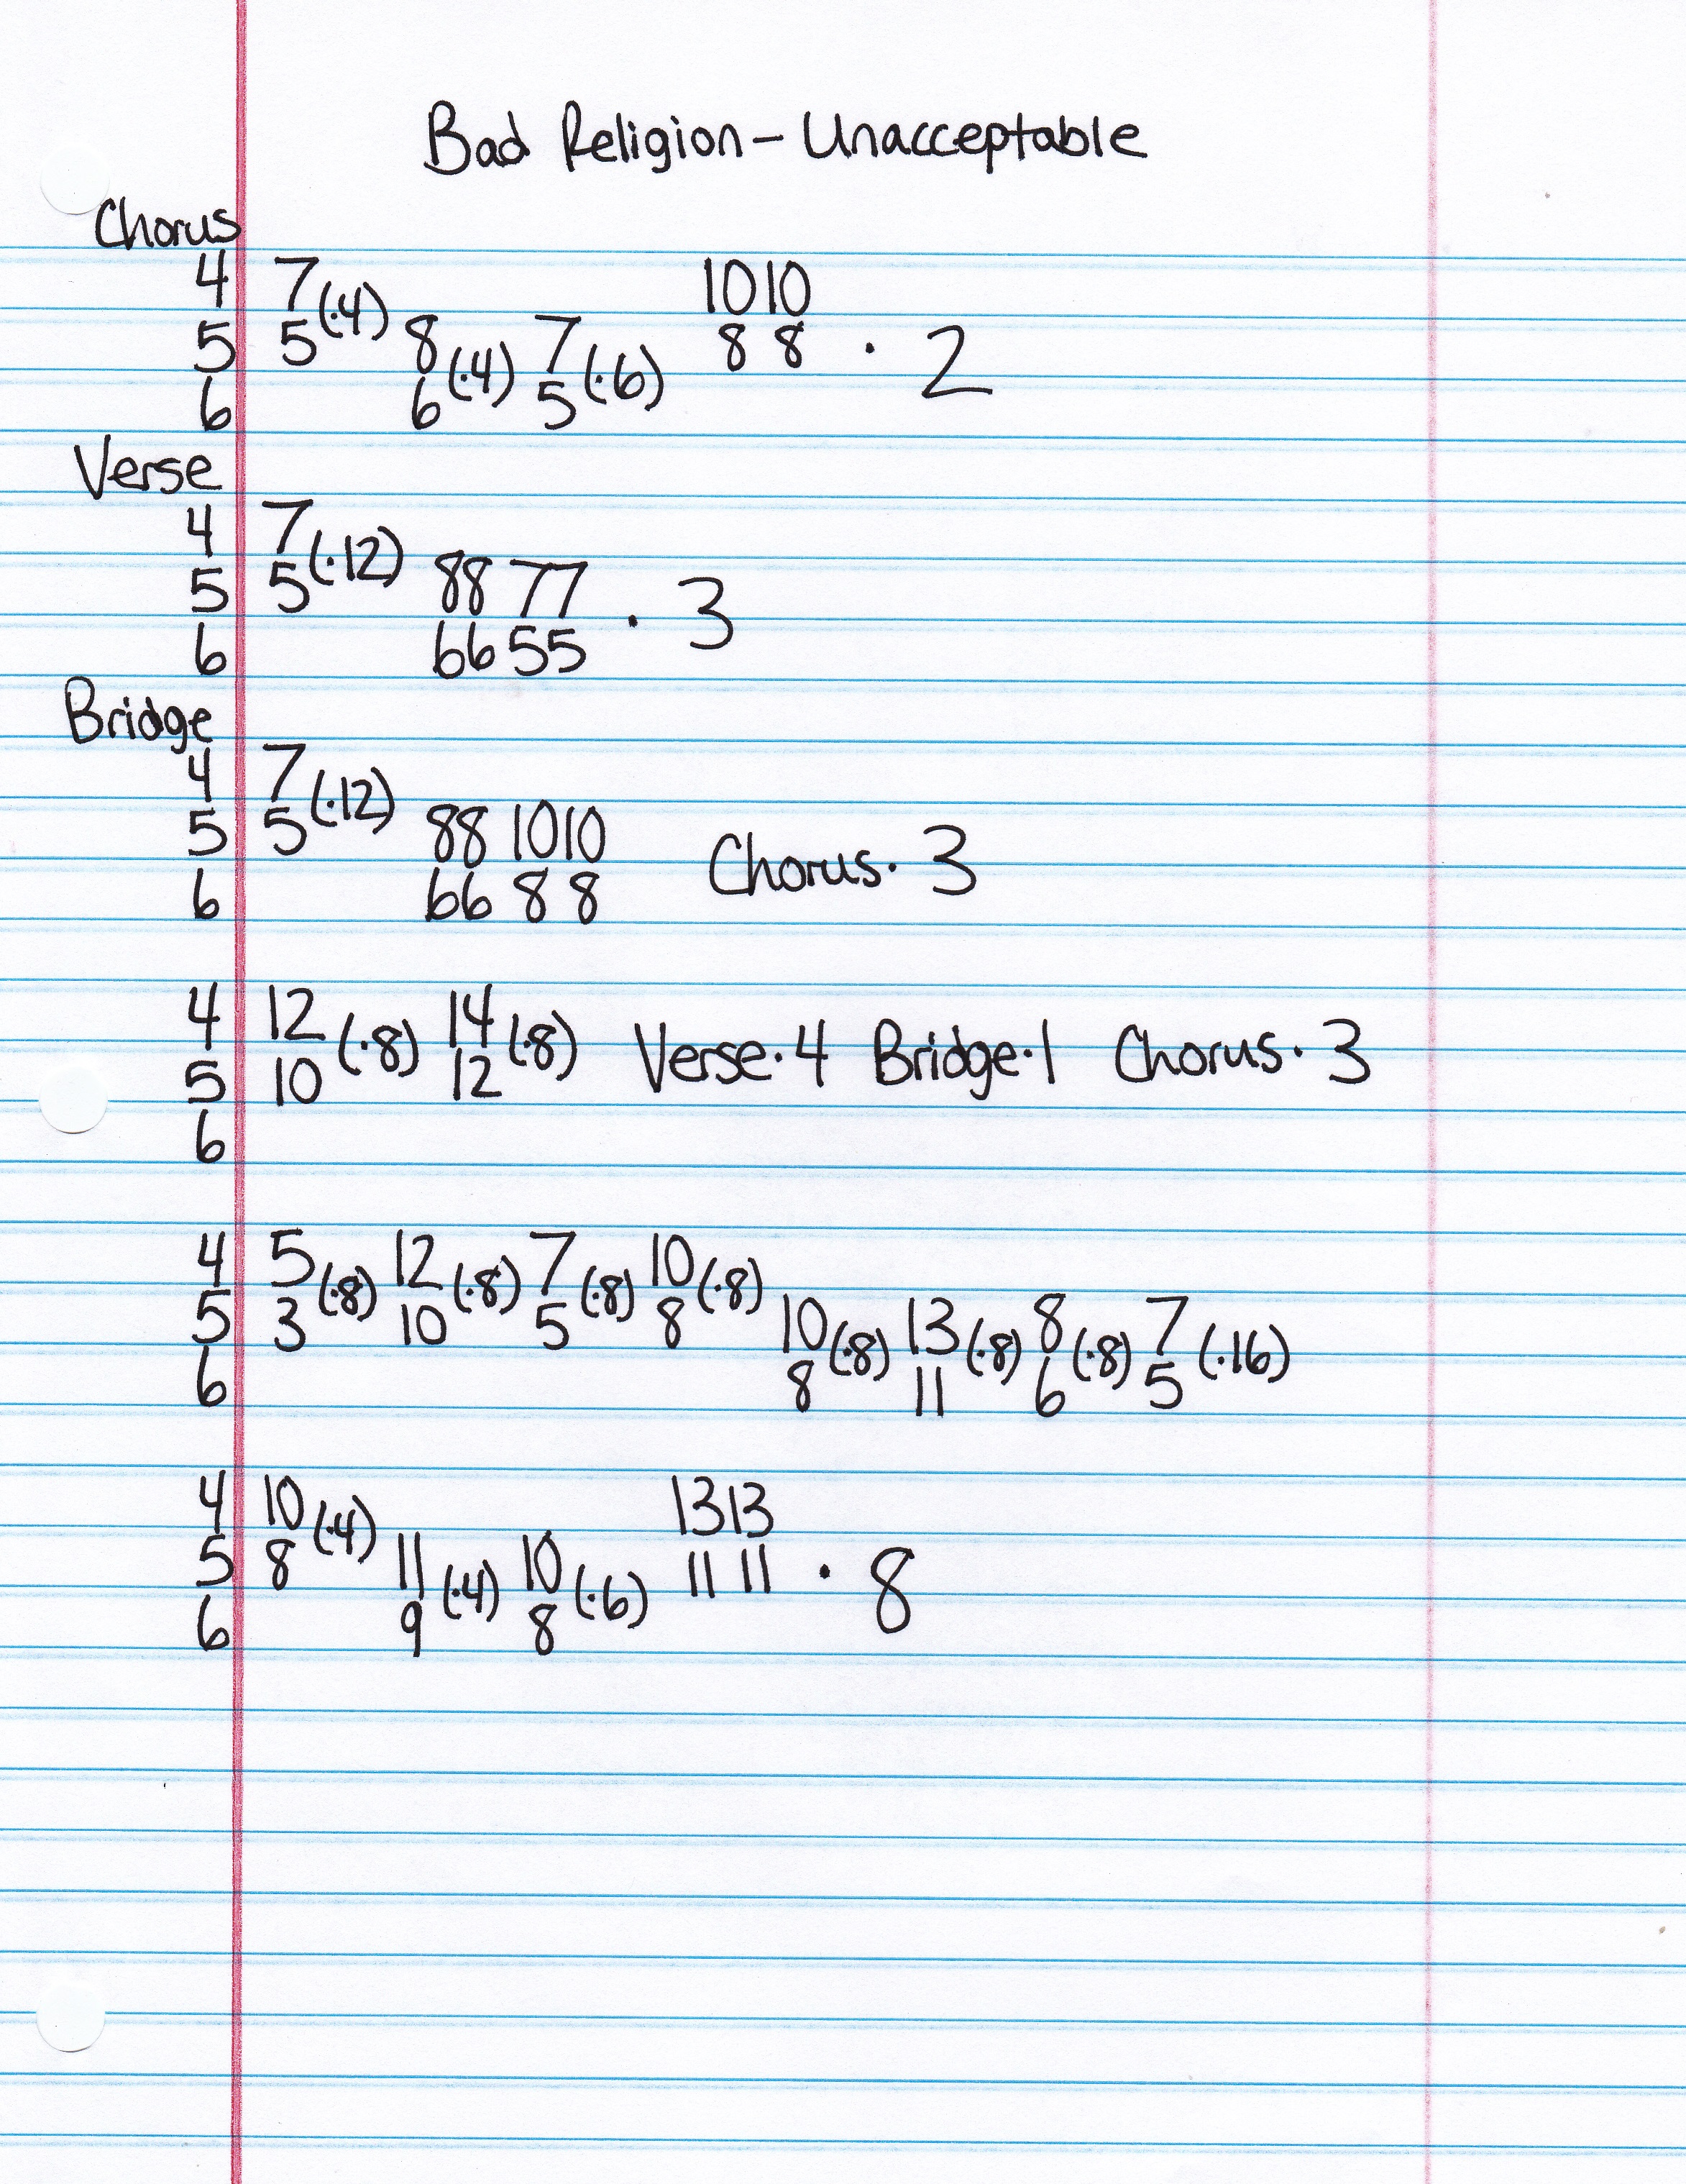 Bad Religion – Unacceptable
Chorus
4 7 10 10
(·4)
5 5 8 7 8 8 · 2
(·4) (·6)
6 6 5
Verse
4 7
(·12)
5 5 88 77
· 3
6 66 55
Bridge
4 7
(·12)
5 5 88 1010
Chorus · 3
6 66 8 8
4 12 14
(·8) (·8) Verse · 4 Bridge · 1 Chorus · 3
5 10 12
6
4 5 12 7 10
(·8) (·8) (·8) (·8)
5 3 10 5 8 10 13 8 7
(·8) (·8) (·8) (·16)
6 8 11 6 5
4 10 1313
(·4)
5 8 11 10 11 11 · 8
(·4) (·6)
6 9 8